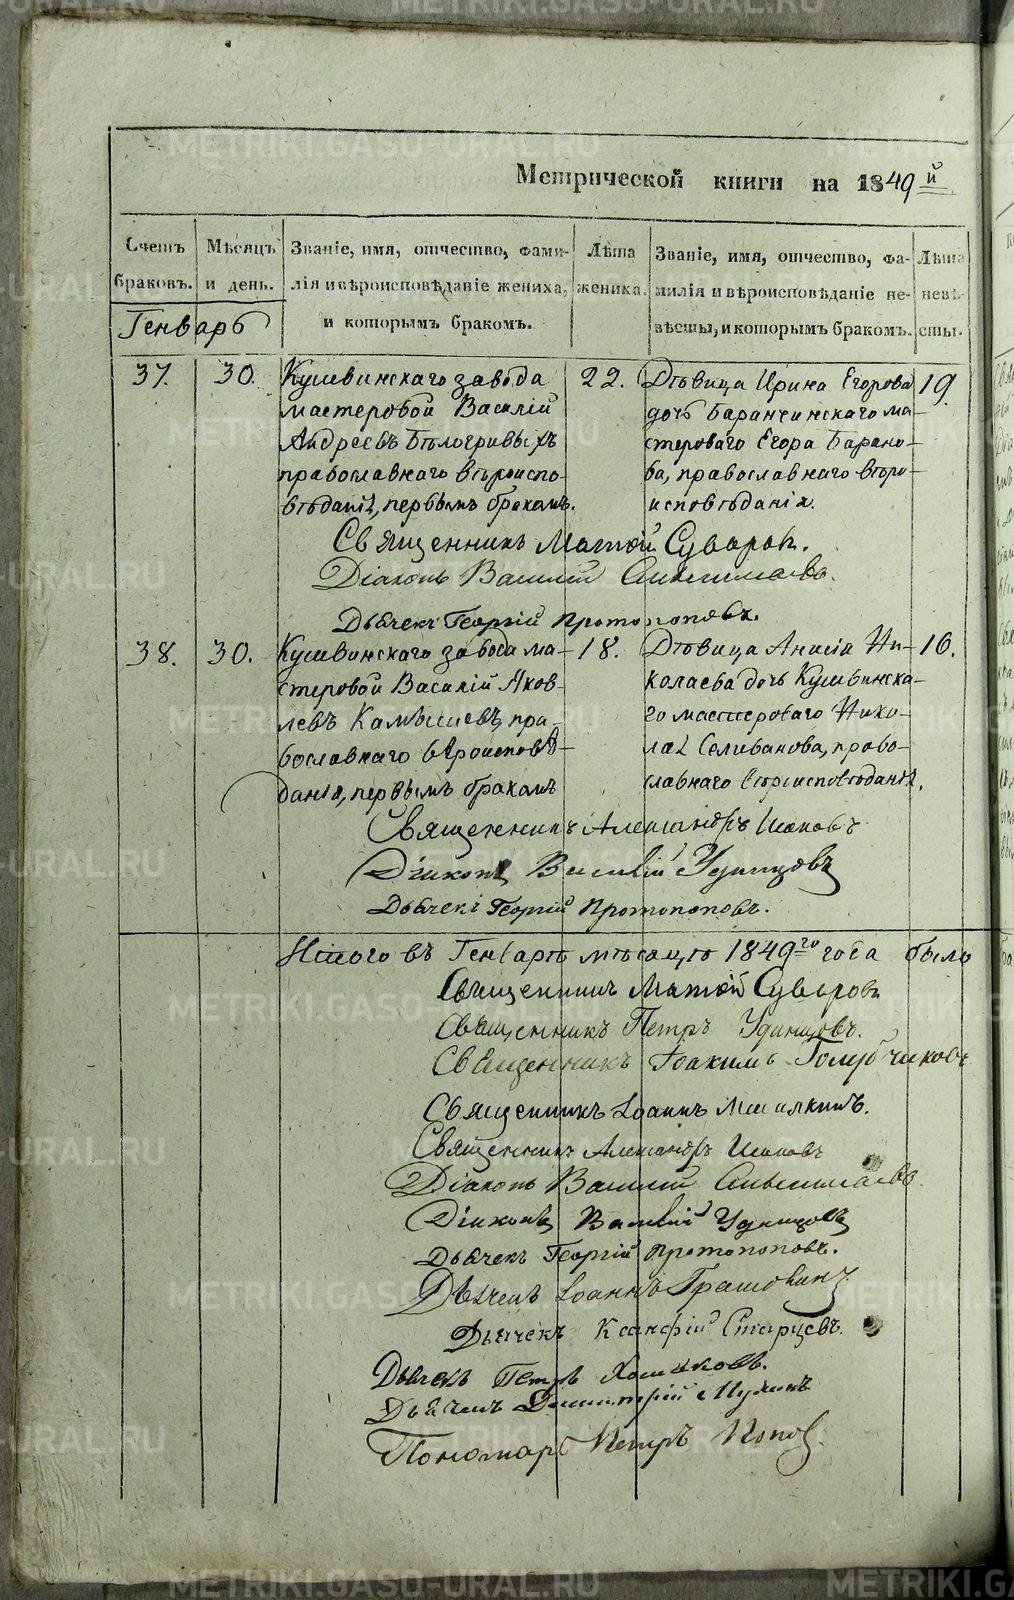 Метрической книги на 1849й
Счетъ браковъ.
Мѣсяцъ и день.
Званіе, имя, отчество, фами-
лія и вѣроисповѣданіе жениха,
и которымъ бракомъ.
Лѣта жениха.
Званіе, имя, отчество, фа-
милія и вѣроисповѣданіе не-
вѣсты, и которымъ бракомъ.
Лѣта невѣ-
сты.
Генварь
37.
30.
Кушвинскаго завода
мастеровой Василій
Андреевъ Бѣлогривыхъ
православнаго вѣроиспо-
вѣданія, первымъ бракомъ.
22.
Дѣвица Ирина Егорова
дочь Баранчинскаго ма-
стероваго Егора Барано-
ва, православнаго вѣро-
исповѣданія.
19.
Священникъ Матѳій Суворовъ.
Діаконъ Василій
Дьячекъ Георгій Протопоповъ.
38.
30.
Кушвинскаго завода ма-
стеровой Василій Яков-
левъ Камышевъ, пра-
вославнаго вѣроисповѣ-
данія, первымъ бракомъ
18.
Дѣвица Анисія Ни-
колаева дочь Кушвинска-
го мастероваго Нико-
лая Селиванова, право-
славнаго вѣроисповѣданія.
16.
Священникъ Александръ Иконовъ
Діаконъ Василій Удинцовъ
Дьячекъ Георгій Протопоповъ.
Итого въ Генварѣ мѣсяцѣ 1849го года было
Священникъ Матѳій Суворовъ
Священникъ Петръ Удинцовъ.
Священникъ Іоакимъ Голубчиковъ
Священникъ Іоаннъ
Священникъ Александръ Иконовъ
Діаконъ Василій
Діаконъ Василій Удинцовъ
Дьячекъ Георгій Протопоповъ.
Дьячекъ Іоаннъ
Дьячекъ Ксанфій Старцевъ.
Дьячекъ Петръ Хомяковъ.
Дьячекъ Димитрій
Пономарь Петръ Поповъ.
METRIKI.GASO-URAL.RU